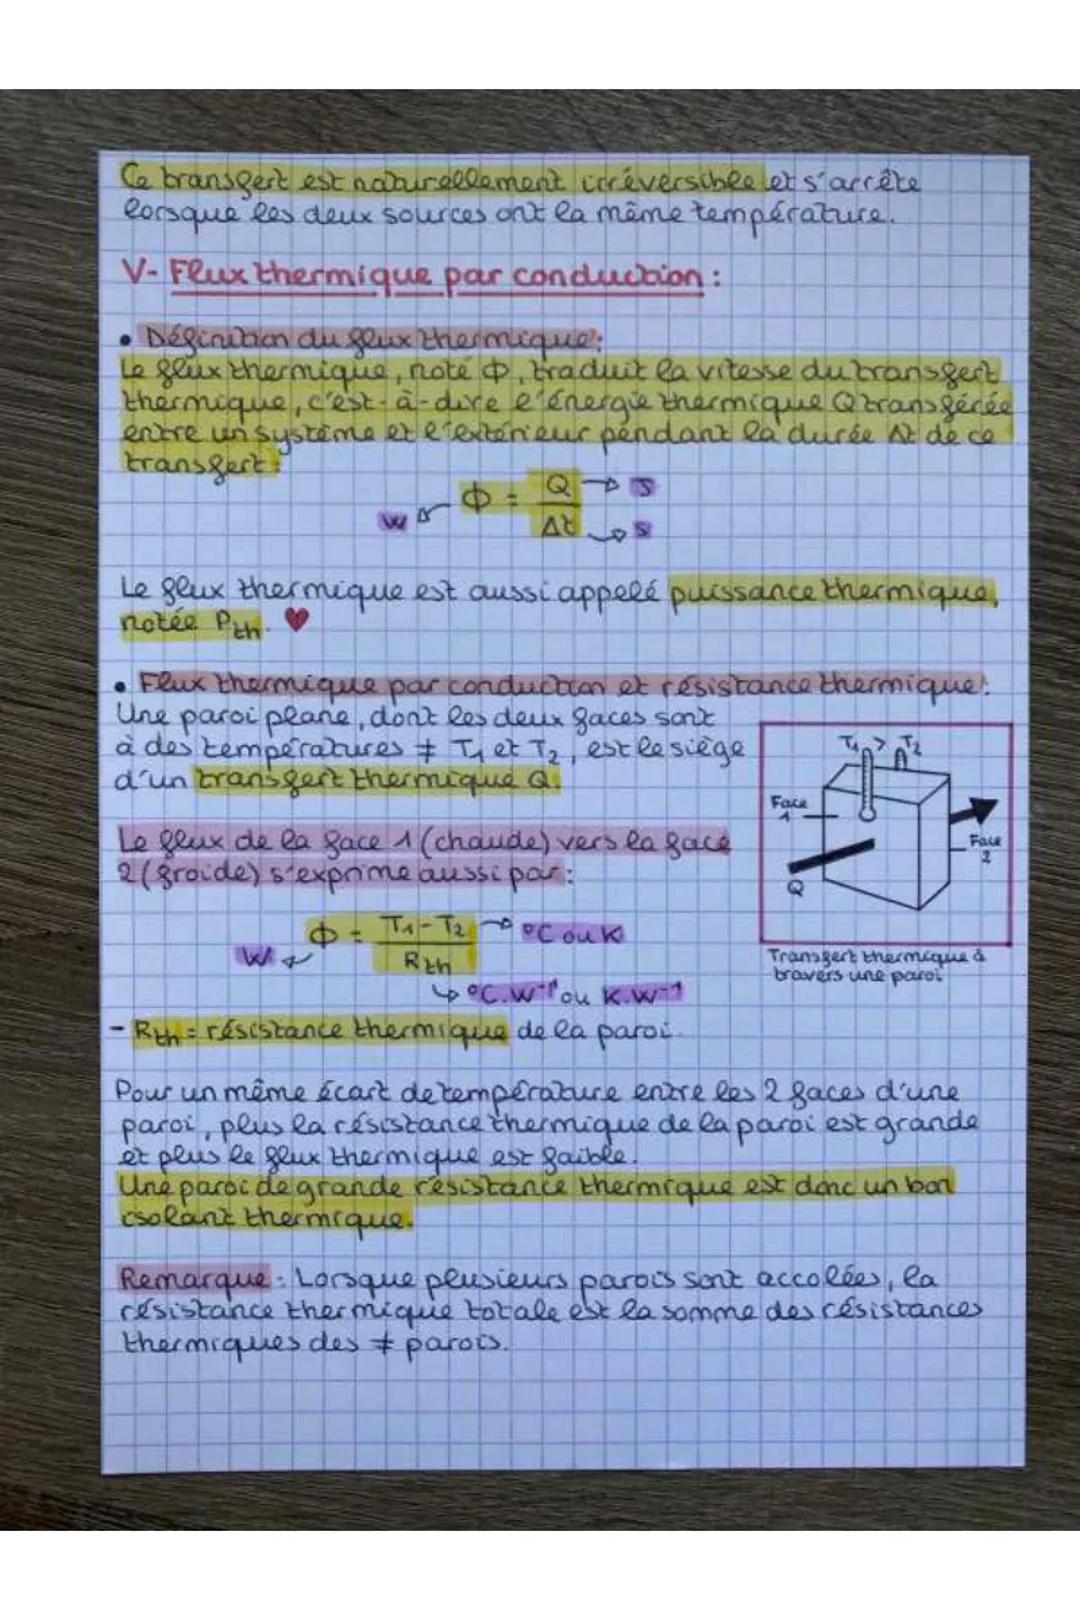 Ce transfert est naturellement irréversible et s'arrête
lorsque les deux sources ont la même température.
V- Flux thermique par conduction :
• Définition du flux thermique :
Le flux thermique, noté Φ, traduit la vitesse du transfert
thermique, c'est-à-dire l'énergie thermique Q transférée
entre un système et l'extérieur pendant la durée Δt de ce
transfert :
W ← Φ = Q / Δt → J → s
Le flux thermique est aussi appelé puissance thermique,
notée Pth. ♥
• Flux thermique par conduction et résistance thermique :
Une paroi plane, dont les deux faces sont
à des températures ≠ T1 et T2, est le siège
d'un transfert thermique Q.
Le flux de la face 1 (chaude) vers la face
2 (froide) s'exprime aussi par :
W ← Φ = T1 - T2 / Rth → °C ou K
↳ °C.W⁻¹ ou K.W⁻¹
T1 > T2
Face
1
Face
2
Q
Transfert thermique à
travers une paroi
- Rth = résistance thermique de la paroi.
Pour un même écart de température entre les 2 faces d'une
paroi, plus la résistance thermique de la paroi est grande
et plus le flux thermique est faible.
Une paroi de grande résistance thermique est donc un bon
isolant thermique.
Remarque : Lorsque plusieurs parois sont accolées, la
résistance thermique totale est la somme des résistances
thermiques des ≠ parois.